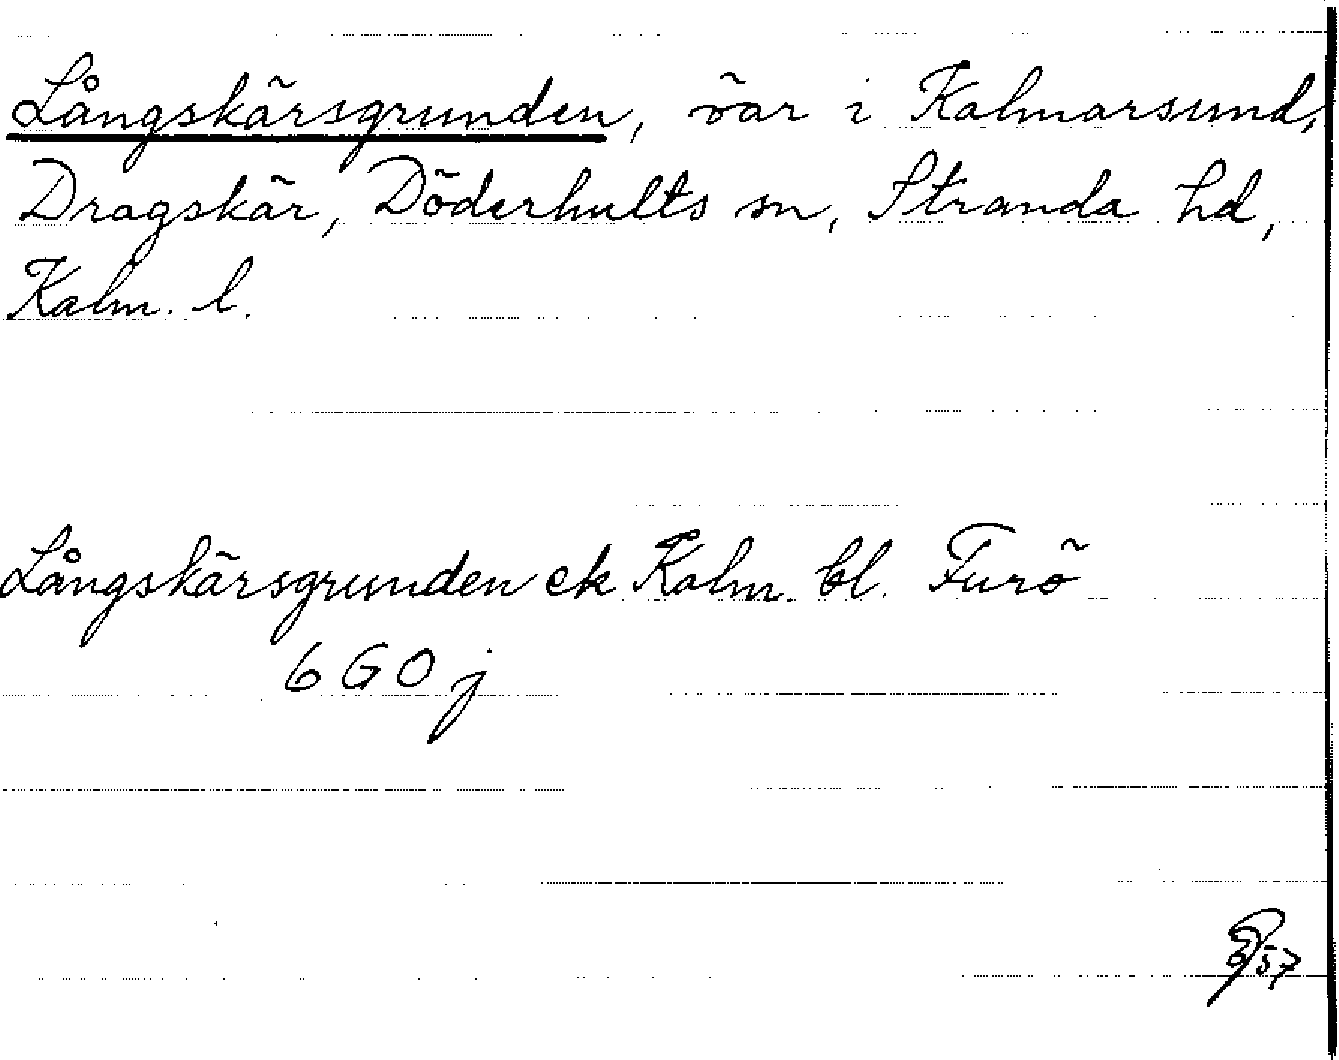 Långskärsgrunden, öar i Kalmarsund,
Dragskär, Döderhults sn, Stranda hd,
Kalm. l.
Långskärsgrunden ek Kalm. bl. Furö
6 G O j
57